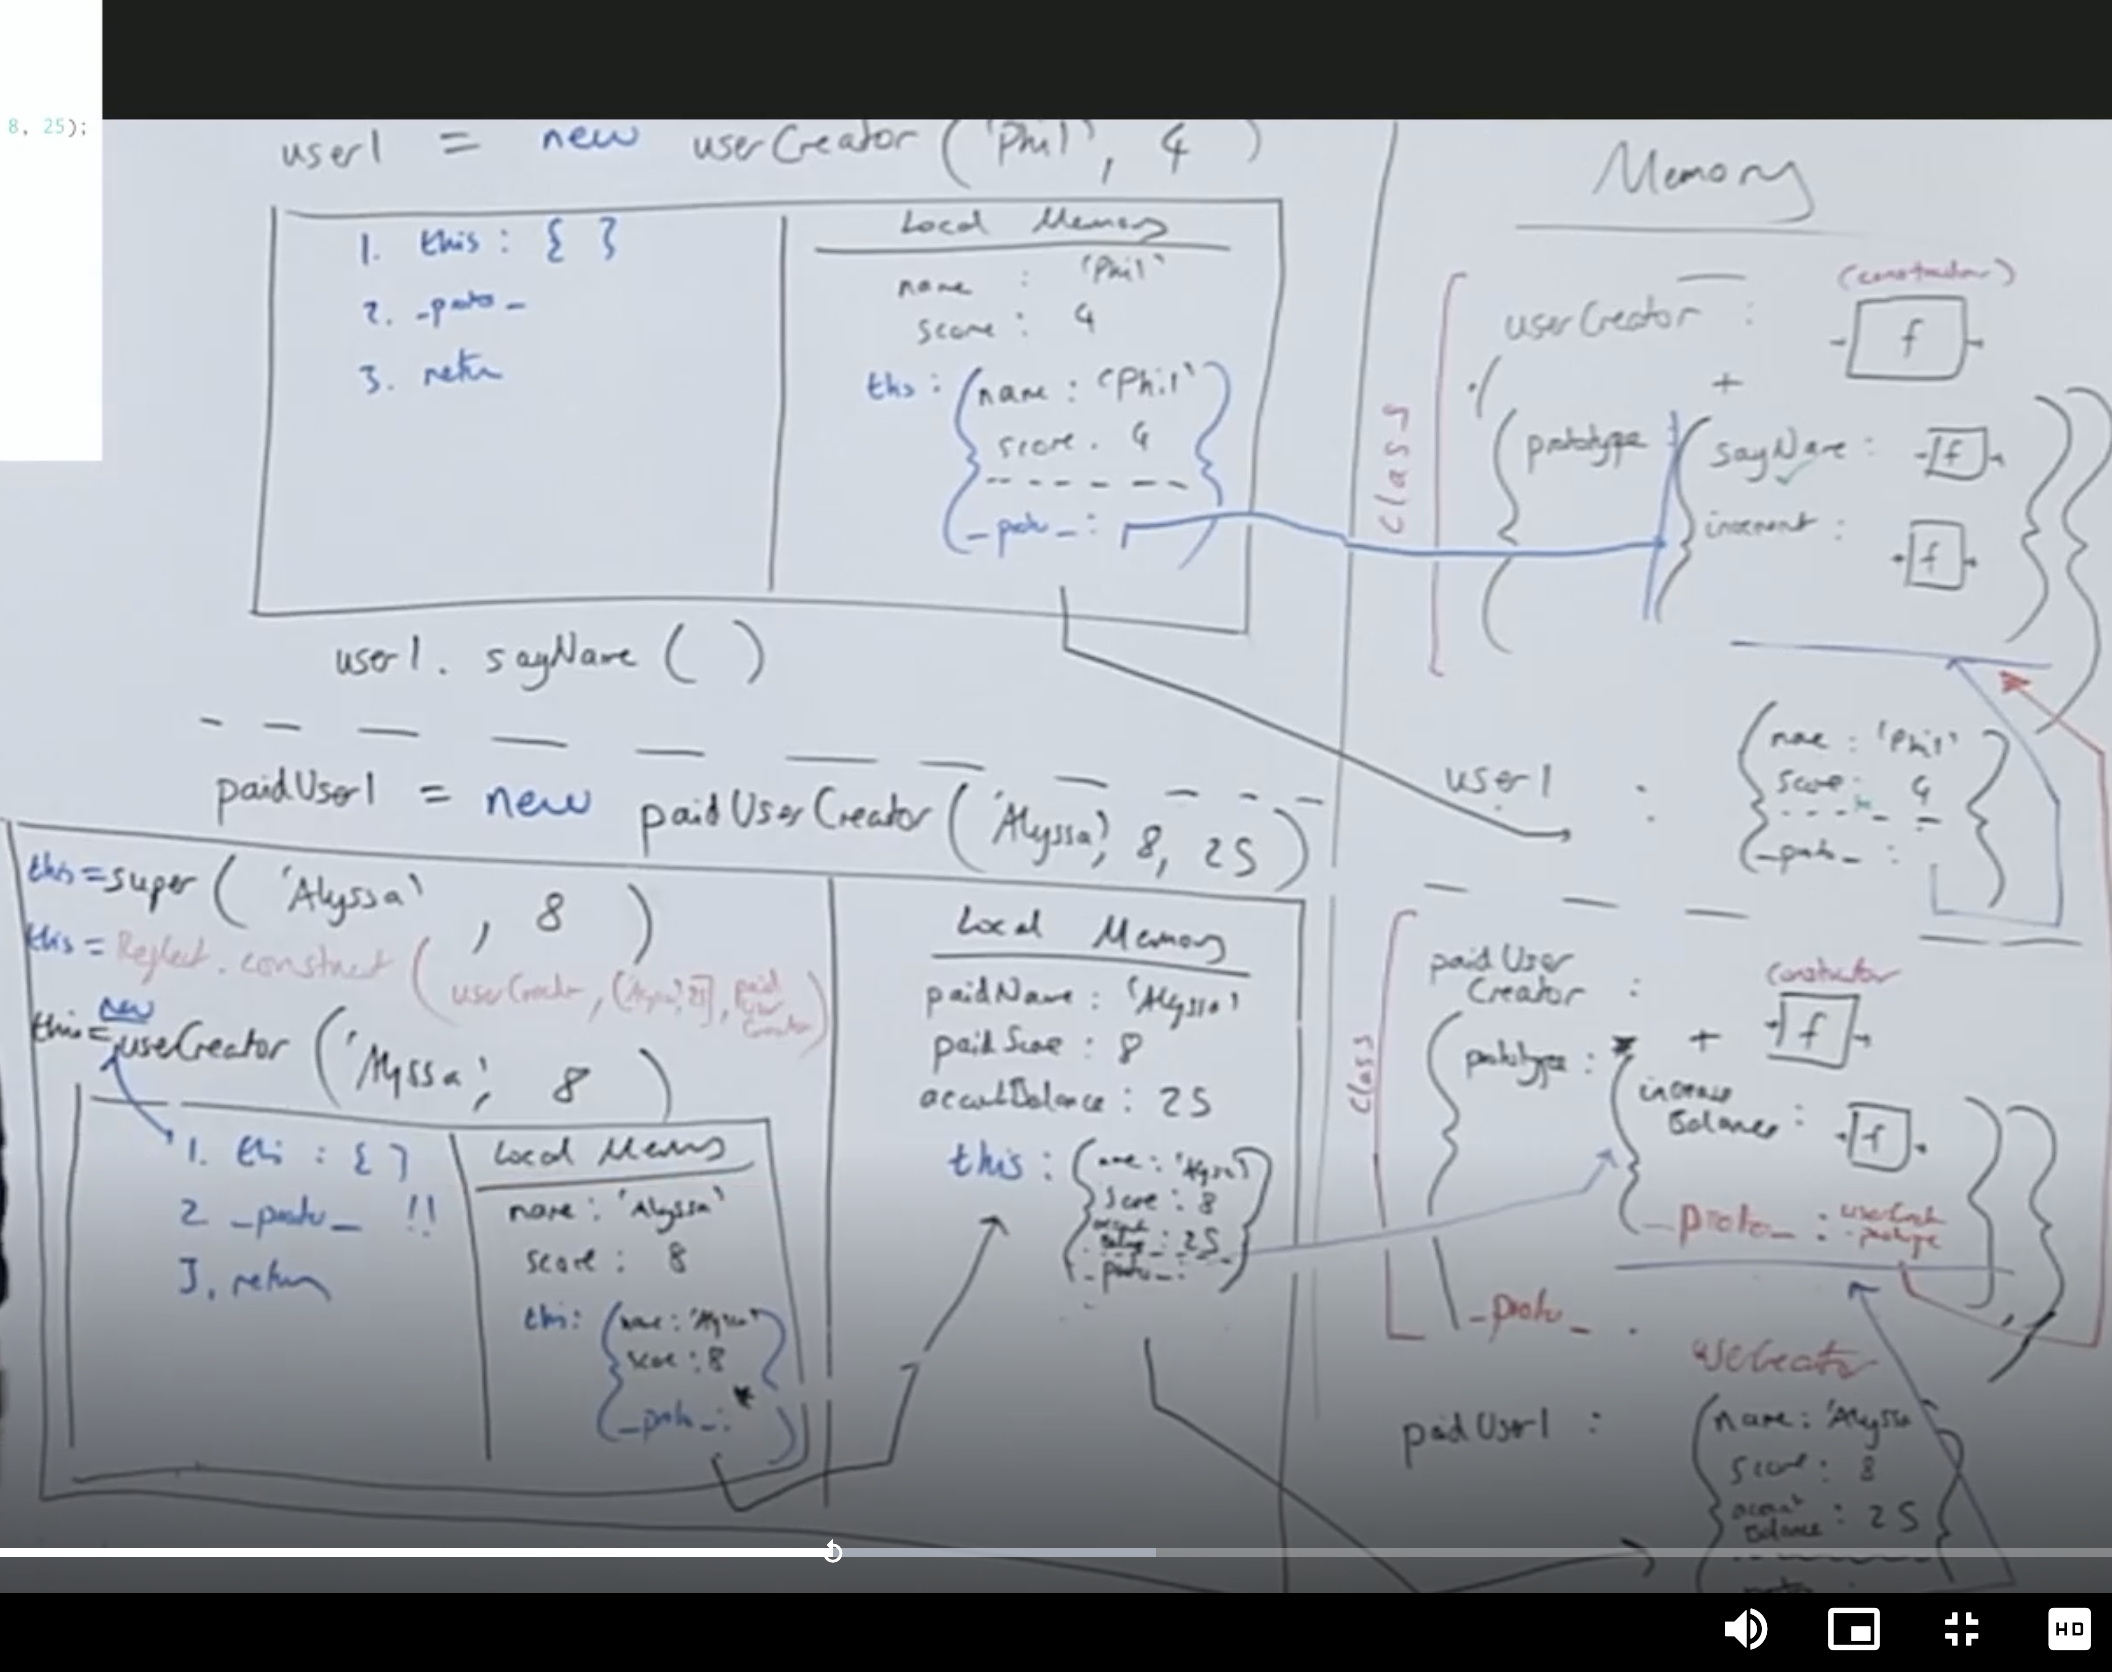 8, 25);
user1 = new userCreator ('Phil', 4)
1. this : { }
2. _proto_
3. return
Local Memory
name : 'Phil'
score : 4
this : { name : 'Phil'
score . 4
_proto_ : }
user1. sayName ( )
paidUser1 = new paidUserCreator ('Alyssa', 8, 25)
this = super ( 'Alyssa' , 8 )
this = Reflect.construct ( userCreator, ['Alyssa', 8], paid User Creator )
new
this = userCreator ('Alyssa', 8 )
1. this : { }
2 _proto_ !!
3. return
Local Memory
name : 'Alyssa'
score : 8
this: { name : 'Alyssa'
score : 8
_proto_ : * }
Local Memory
paidName : 'Alyssa'
paidScore : 8
accountBalance : 25
this : { name : 'Alyssa'
score : 8
account
Balance : 25
_proto_ : }
Memory
(constructor)
userCreator : f
+
class
{ prototype : { sayName : f
increment : f } }
user1 : { name : 'Phil'
score : 4
_proto_ : }
paid User
Creator : constructor
+ f
class
{ prototype : * { increase
Balance : f
_proto_ : userCreator
.prototype } }
_proto_ :
userCreator
paidUser1 : { name : 'Alyssa
score : 8
account
Balance : 25
HD